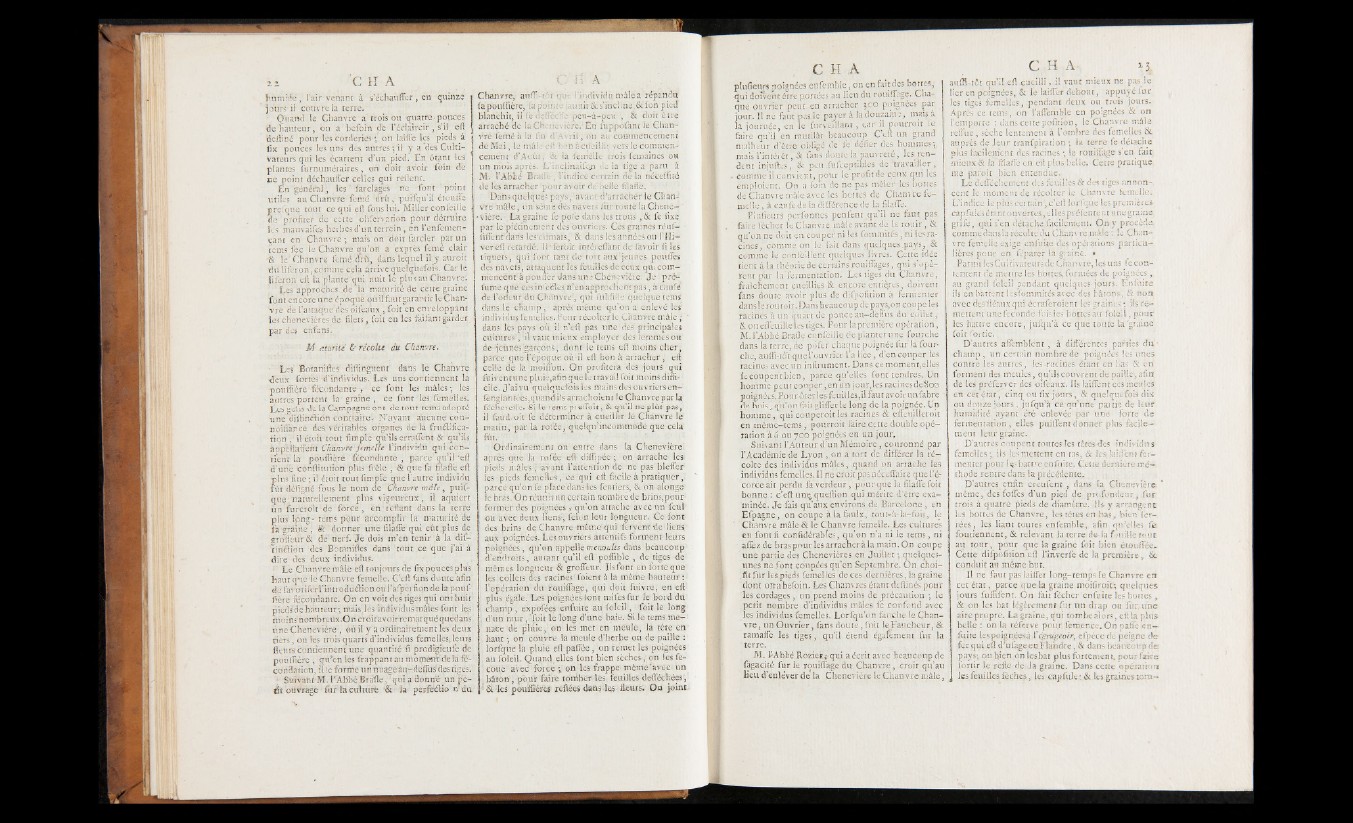 22 CHA
humide, l'air venant à s'échauffer, en quinze
jours il couvre la terre.
Quand le Chanvre a trois ou quatre pouces
de hauteur, on a besoin de l'éclaircir, s'il est
destiné pour les corderies; on laisse les pieds à
six pouces les uns des autres; il y a des Culti-
vateurs qui les écartent d'un pied. En ôtant les
plantes surnuméraires, on doit avoir soin de
ne point déchausser celles qui restent.
En général, les sarclages ne sont point
utiles au Chanvre semé dru, puisqu'il étouffe
presque tout ce qui est sous lui. Miller conseille
de profiter de cette observation pour détruire
les mauvaises herbes d'un terrein, en l'ensemen-
çant en Chanvre; mais on doit sarcler par un
tems sec le Chanvre qu'on a exprès semé clair
& le Chanvre semé dru, dans lequel il y auroit
du liseron, comme cela arrive quelquefois. Car le
liseron est la plante qui nuit le plus au Chanvre.
Les approches de la maturité de cette graine
sont encore une époque où il faut garantir le Chan-
vre de l'attaque des oiseaux, soit en enveloppant
les chenevières de filets, soit en les faisant garder
par des enfans.
Maturité & récolte du Chanvre.
Les Botanistes distinguent dans le Chanvre
deux sortes d'individus. Les uns contiennent la
poussière fécondante, ce sont les mâles; les
autres portent la graine, ce sont les femelles.
Les gens de la Campagne ont de tout tems adopté
une distinction contraire. N'ayant aucune con-
noissance des véritables organes de la fructifica-
tion, il étoit tout simple qu'ils crussent & qu'ils
appellassent Chanvre femelle l'individu qui con-
tient la poussière fécondante, parce qu'il est
d'une constitution plus frêle, & que sa filasse est
plus fine; il étoit tout simple que l'autre individu
fût désigné sous le nom de Chanvre mâle, puis-
que naturellement plus vigoureux, il acquiert
un surcroît de force, en restant dans la terre
plus long-tems pour accomplir la maturité de
sa graine, & donner une filasse qui eût plus de
grosseur & de nerf. Je dois m'en tenir à la dis-
tinction des Botanistes dans tout ce que j'ai à
dire des deux individus.
Le Chanvre mâle est toujours de six pouces plus
haut que le Chanvre femelle. C'est sans doute afin
de favoriser l'introduction ou l'aspersion de la pous-
sière fécondante. On en voit des tiges qui ont huit
pieds de hauteur; mais les individus mâles sont les
moins nombreux. On croit avoir remarqué que dans
une Chenevière, où il y a ordinairement les deux
tiers, ou les trois quarts d'individus femelles, leurs
fleurs contiennent une quantité si prodigieuse de
poussière, qu'en les frappant au moment de la fé-
condation, il se forme un nuage au-dessus des tiges.
Suivant M. l'Abbé Brasle, qui a donné un pe-
tit ouvrage sur la culture & la perfection du
CHA
Chanvre, aussi-tôt que l'individu mâle a répandu
sa poussière, la pointe jaunit & s'incline, & son pied
blanchit, il se dessèche peu-à-peu, & doit être
arraché de la Chenevière. En supposant le Chan-
vre semé à la fin d'Avril, ou au commencement
de Mai, le mâle est bon à cueillir vers le commen-
cement d'Août, & la femelle trois semaines ou
un mois après. L'inclinaison de la tige a paru à
M. l'Abbé Brasle, l'indice certain de la nécessité
de les arracher pour avoir de belle filasse.
Dans quelques pays, avant d'arracher le Chan-
vre mâle, on sème des navets sur toute la Chene-
vière. La graine se pose dans les trous, & se fixe
par le piétinement des ouvriers. Ces graines réus-
sissent dans les climats, & dans les années où l'Hi-
ver est retardé. Il seroit intéressant de savoir si les
tiquets, qui font tant de tort aux jeunes pousses
des navets, attaquent les feuilles de ceux qui com-
mencent à pousser dans une Chenevière. Je pré-
sume que ces insectes n'en approchent pas, à cause
de l'odeur du Chanvre, qui subsiste quelque tems
dans le champ, après même qu'on a enlevé les
individus femelles. Pour récolter le Chanvre mâle,
dans les pays où il n'est pas une des principales
cultures, il vaut mieux employer des femmes ou
de jeunes garçons, dont le tems est moins cher,
parce que l'époque où il est bon à arracher, est
celle de la moisson. On profitera des jours qui
suivent une pluie, afin que le travail soit moins diffi-
cile. J'ai vu quelquefois les mains des ouvriers en-
sanglantées, quand ils arrachoient le Chanvre par la
sécheresse. Si le tems pressoit, & qu'il ne plût pas,
il faudroit se déterminer à cueillir le Chanvre le
matin, par la rosée, quelqu'incommode que cela
fût.
Ordinairement on entre dans la Chenevière
après que la rosée est dissipée; on arrache les
pieds mâles, ayant l'attention de ne pas blesser
les pieds femelles, ce qui est facile à pratiquer,
parce qu'on se place dans les sentiers, & on alonge
le bras. On réunit un certain nombre de brins, pour
former des poignées, qu'on attache avec un seul
ou avec deux liens, selon leur longueur. Ce sont
des brins de Chanvre même qui servent de liens
aux poignées. Les ouvriers attentifs forment leurs
poignées, qu'on appelle menoulles dans beaucoup
d'endroits, autant qu'il est possible, de tiges de
mêmes longueur & grosseur. Ils font en sorte que
les collets des racines soient à la même hauteur:
l'opération du rouissage, qui doit suivre, en est
plus égale. Les poignées sont mises sur le bord du
champ, exposées ensuite au soleil, soit le long
d'un mur, soit le long d'une haie. Si le tems me-
nace de pluie, on les met en meule, la tête en
haut; on couvre la meule d'herbe ou de paille:
lorsque la pluie est passée, on remet les poignées
au soleil. Quand elles sont bien sèches, on les se-
coue avec force; on les frappe même avec un
bâton, pour faire tomber les feuilles desséchées,
& les poussières restées dans les fleurs. On joint
CHA
plusieurs poignées ensemble, on en fait des bottes,
qui doivent être portées au lieu du rouissage. Cha-
que ouvrier peut en arracher 300 poignées par
jour. Il ne faut pas le payer à la douzaine, mais à
la journée, en le surveillant, car il pourroit se
faire qu'il en mutilât beaucoup. C'est un grand
malheur d'être obligé de se défier des hommes;
mais l'intérêt, & sans doute la pauvreté, les ren-
dent injustes, & peu susceptibles de travailler,
comme il convient, pour le profit de ceux qui les
emploient. On a soin de ne pas mêler les bottes
de Chanvre mâle avec les bottes de Chanvre fe-
melle, à cause de la différence de la filasse.
Plusieurs personnes pensent qu'il ne faut pas
faire sécher le Chanvre mâle avant de le rouir, &
qu'on ne doit en couper ni les sommités, ni les ra-
cines, comme on le fait dans quelques pays, &
comme le conseillent quelques livres. Cette idée
tient à la théorie de certains rouissages, qui s'opè-
rent par la fermentation. Les tiges du Chanvre,
fraîchement cueillies & encore entières, doivent
sans doute avoir plus de disposition à fermenter
dans le routoir. Dans beaucoup de pays, on coupe les
racines à un quart de pouce au-dessus du collet,
& on effeuille les tiges. Pour la première opération,
M. l'Abbé Brasle conseille de planter une fourche
dans la terre, de poser chaque poignée sur la four-
che, aussi-tôt que l'ouvrier l'a liée, d'en couper les
racines avec un instrument. Dans ce moment, elles
se coupent bien, parce qu'elles sont tendres. Un
homme peut couper, en un jour, les racines de 800
poignées. Pour ôter les feuilles, il faut avoir un sabre
de bois, qu'on fait glisser le long de la poignée. Un
homme, qui couperoit les racines & effeuilleroit
en même-tems, pourroit faire cette double opé-
ration à 6 ou 700 poignées en un jour.
Suivant l'Auteur d'un Mémoire, couronné par
l'Académie de Lyon, on a tort de différer la ré-
colte des individus mâles, quand on arrache les
individus femelles. Il ne croit pas nécessaire que l'é-
corce ait perdu sa verdeur, pour que la filasse soit
bonne: c'est une question qui mérite d'être exa-
minée. Je sais qu'aux environs de Barcelone, en
Espagne, on coupe à la faulx, tout-à-la-fois, le
Chanvre mâle & le Chanvre femelle. Les cultures
en sont si considérables, qu'on n'a ni le tems, ni
assez de bras pour les arracher à la main. On coupe
une partie des Chenevières en Juillet; quelques-
unes ne sont coupées qu'en Septembre. On choi-
sit sur les pieds femelles de ces dernières, la graine
dont on a besoin. Les Chanvres étant destinés pour
les cordages, on prend moins de précaution; le
petit nombre d'individus mâles se confond avec
les individus femelles. Lorsqu'on fauche le Chan-
vre, un Ouvrier, sans doute, suit le Faucheur, &
ramasse les tiges, qu'il étend également sur la
terre.
M. l'Abbé Rozier, qui a écrit avec beaucoup de
sagacité sur le rouissage du Chanvre, croit qu'au
lieu d'enlever de la Chenevière le Chanvre mâle,
CHA 23
aussi-tôt qu'il est cueilli, il vaut mieux ne pas le
lier en poignées, & le laisser debout, appuyé sur
les tiges femelles, pendant deux ou trois jours.
Après ce tems, on l'assemble en poignées & on
l'emporte: dans cette position, le Chanvre mâle
ressue, sèche lentement à l'ombre des femelles &
auprès de leur transpiration; la terre se détache
plus facilement des racines; le rouissage s'en fait
mieux & la filasse en est plus belle. Cette pratique
me paroît bien entendue.
Le desséchement des feuilles & des tiges annon-
cent le moment de récolter le Chanvre femelle.
L'indice le plus certain, c'est lorsque les premières
capsules étant ouvertes, elles présentent une graine
grise, qui s'en détache facilement. On y procède
comme dans la récolte du Chanvre mâle: le Chan-
vre femelle exige ensuite des opérations particu-
lières pour en séparer la graine.
Parmi les Cultivateurs de Chanvre, les uns se con-
tentent de mettre les bottes, formées de poignées,
au grand soleil pendant quelques jours. Ensuite
ils en battent les sommités avec des bâtons, & non
avec des fléaux qui écraseroient les grains: ils re-
mettent une seconde fois les bottes au soleil, pour
les battre encore, jusqu'à ce que toute la graine
soit sortie.
D'autres assemblent, à différentes parties du
champ, un certain nombre de poignées les unes
contre les autres, les racines étant en bas, & en
forment des meules, qu'ils couvrent de paille, afin
de les préserver des oiseaux. Ils laissent ces meules
en cet état, cinq ou six jours, & quelquefois dix
ou douze jours, jusqu'à ce qu'une partie de leur
humidité ayant été enlevée par une sorte de
fermentation, elles puissent donner plus facile-
ment leur graine.
D'autres coupent toutes les têtes des individus
femelles; ils les mettent en tas, & les laissent fer-
menter pour les battre ensuite. Cette dernière mé-
thode rentre dans la précédente.
D'autres enfin creusent, dans la Chenevière
même, des fosses d'un pied de profondeur, sur
trois à quatre pieds de diamètre. Ils y arrangent
les bottes de Chanvre, les têtes en bas, bien ser-
rées, les liant toutes ensemble, afin qu'elles se
soutiennent, & relevant la terre de la fouille tout
au tour, pour que la graine soit bien étouffée.
Cette disposition est l'inverse de la première, &
conduit au même but.
Il ne faut pas laisser long-temps le Chanvre en
cet état, parce que la graine moisiroit; quelques
jours suffisent. On fait sécher ensuite les bottes,
& on les bat légèrement sur un drap ou sur une
aire propre. La graine, qui tombe alors, est la plus
belle: on la réserve pour semence. On passe en-
suite les poignées à l'égrugeoir, espèce de peigne de
fer qui est d'usage en Flandre, & dans beaucoup de
pays, ou bien on les bat plus fortement, pour faire
sortir le reste de la graine. Dans cette opération
les feuilles sèches, les capsules & les graines tom-